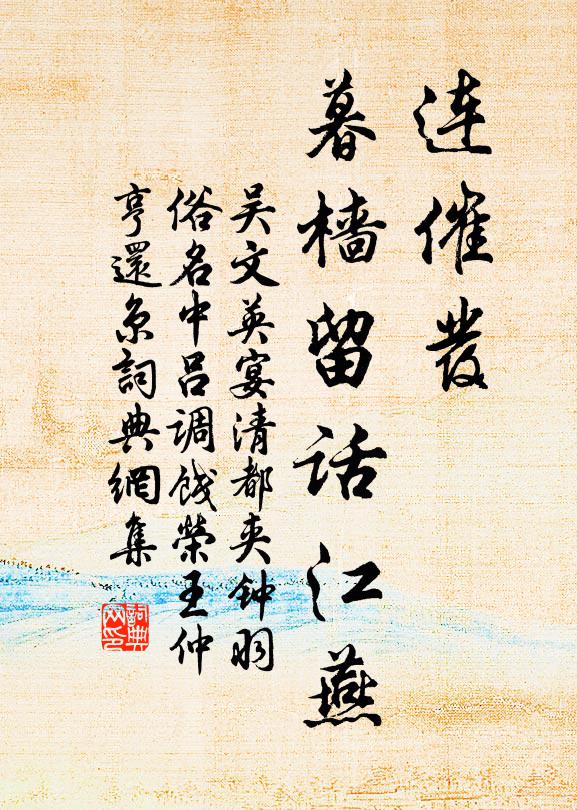 连催發
暮樯留话江燕
吴文英宴清都夹钟羽
俗名中吕调饯榮王仲
亨還京詞典網集
詞典
网印